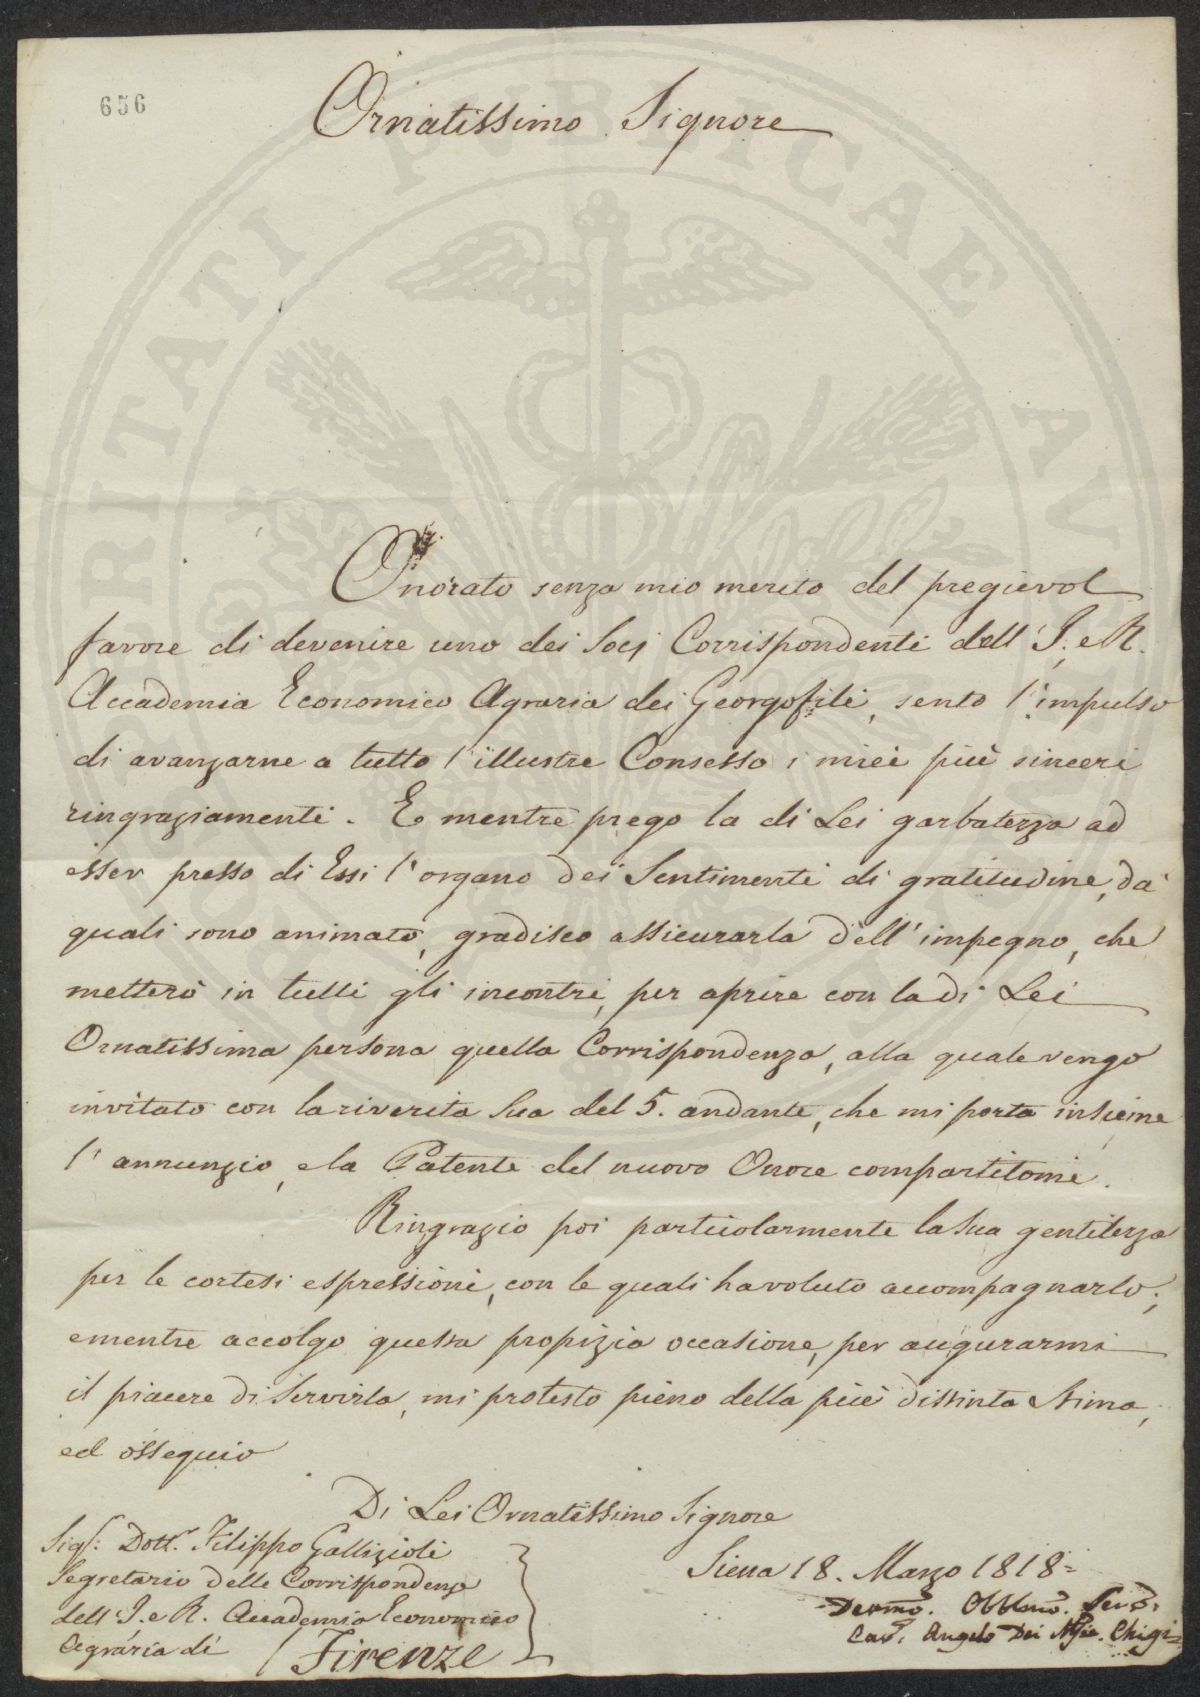 656
Ornatissimo Signore
Onorato senza mio merito del pregievol
favore di devenire uno dei Socj Corrispondenti dell' I. e R.
Accademia Economico Agraria dei Georgofili, sento l'impulso
di avanzarne a tutto l'illustre Consesso i miei più sinceri
ringraziamenti. E mentre prego la di Lei garbatezza ad
esser presso di Essi l'organo dei Sentimenti di gratitudine, da'
quali sono animato, gradisco assicurarla dell'impegno, che
metterò in tutti gli incontri, per aprire con la di Lei
Ornatissima persona quella Corrispondenza, alla quale vengo
invitato con la riverita Sua del 5. andante, che mi porta insieme
l'annunzio, e la Patente del nuovo Onore compartitomi.
Ringrazio poi particolarmente la Sua gentilezza
per le cortesi espressioni, con le quali ha voluto accompagnarlo;
e mentre accolgo questa propizia occasione, per augurarmi
il piacere di Servirla, mi protesto pieno della più distinta Stima,
ed ossequio
Di Lei Ornatissimo Signore
Sigr: Dott. Filippo Gallizioli
Segretario delle Corrispondenze
dell' I. e R. Accademia Economico
Agraria di Firenze
Siena 18. Marzo 1818=
Devmo. Obblmo. Servo.
Cav. Angelo Dei Chigi=
PUBLICAE